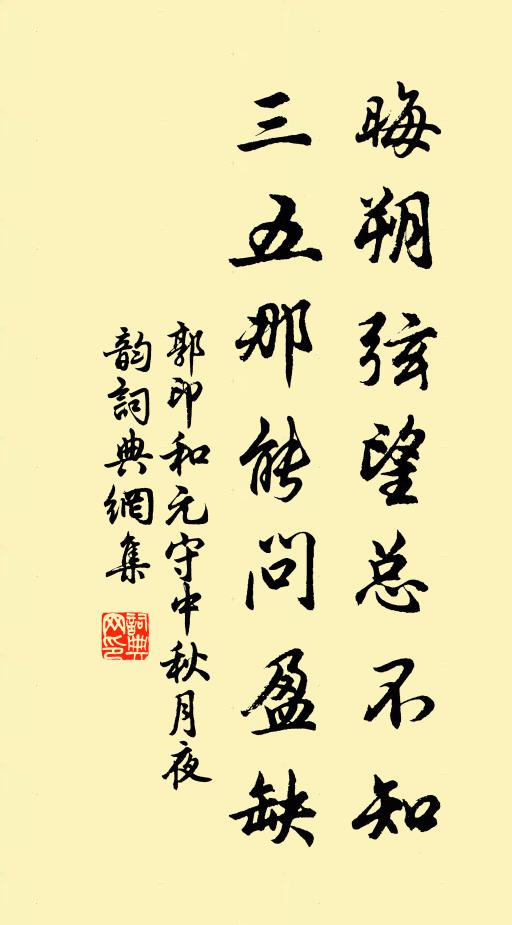 晦朔弦望总不知
三五那能问盈缺
郭印和元守中秋月夜
韵詞典網集
詞典网印